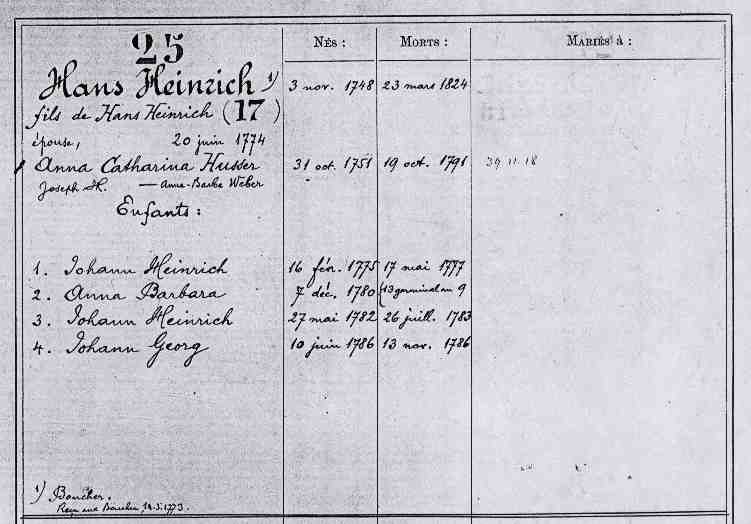 25
Nés : Morts : Mariés à :
Hans Heinrich ¹) 3 nov. 1748 23 mars 1824
fils de Hans Heinrich (17)
épouse, 20 juin 1774
Anna Catharina Husser 31 oct. 1751 19 oct. 1791 39 11 18
Joseph H. — Anne-Barbe Weber
Enfants :
1. Johann Heinrich 16 fév. 1775 17 mai 1777
2. Anna Barbara 7 déc. 1780 13 germinal an 9
3. Johann Heinrich 27 mai 1782 26 juill. 1783
4. Johann Georg 10 juin 1786 13 nov. 1786
¹) Boucher.
Reçu aux 1773.